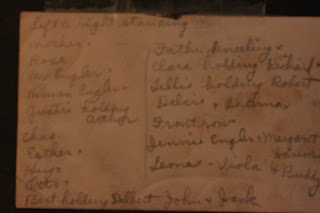 Left to right standing
Mother
Rose
Mr Engler
Herman Engler
Justie holding
Arthur
Chas.
Esther
Hugo
Otto
Bert holding Delbert John & Jack
Father kneeling
Clara holding Richard
Tillie holding Robert
Delcie & Thelma
Front row
Jennie Engler & Margaret
Leona - Viola & Buddy